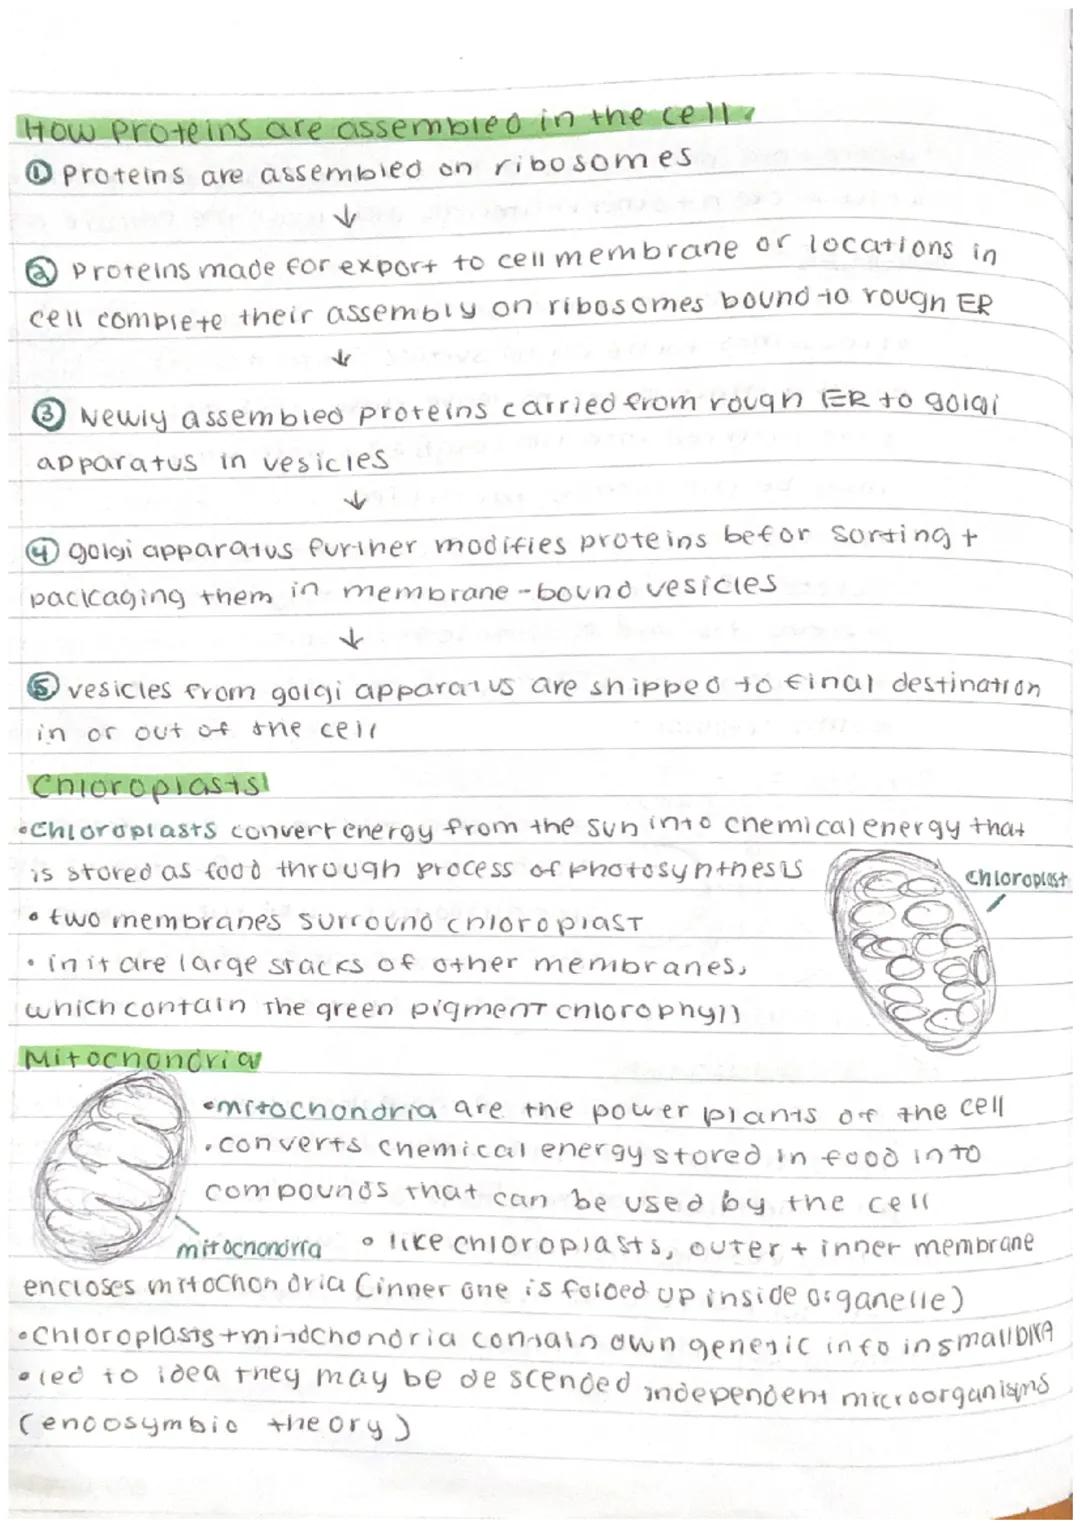 How proteins are assembled in the cell
① Proteins are assembled on ribosomes
↓
② Proteins made for export to cell membrane or locations in
cell complete their assembly on ribosomes bound to rough ER
↓
③ Newly assembled proteins carried from rough ER to golgi
apparatus in vesicles
↓
④ golgi apparatus further modifies proteins befor sorting +
packaging them in membrane-bound vesicles
↓
⑤ vesicles from golgi apparatus are shipped to final destination
in or out of the cell
Chloroplasts
• Chloroplasts convert energy from the sun into chemical energy that
is stored as food through process of photosynthesis
Chloroplast
• two membranes surround chloroplast
• in it are large stacks of other membranes,
which contain the green pigment chlorophyll
Mitochondria
• mitochondria are the power plants of the cell
• converts chemical energy stored in food into
compounds that can be used by the cell
mitochondria
• like chloroplasts, outer + inner membrane
encloses mitochondria (inner one is folded up inside organelle)
• Chloroplasts + mitochondria contain own genetic info in small DNA
• led to idea they may be descended independent microorganisms
(endosymbio theory)